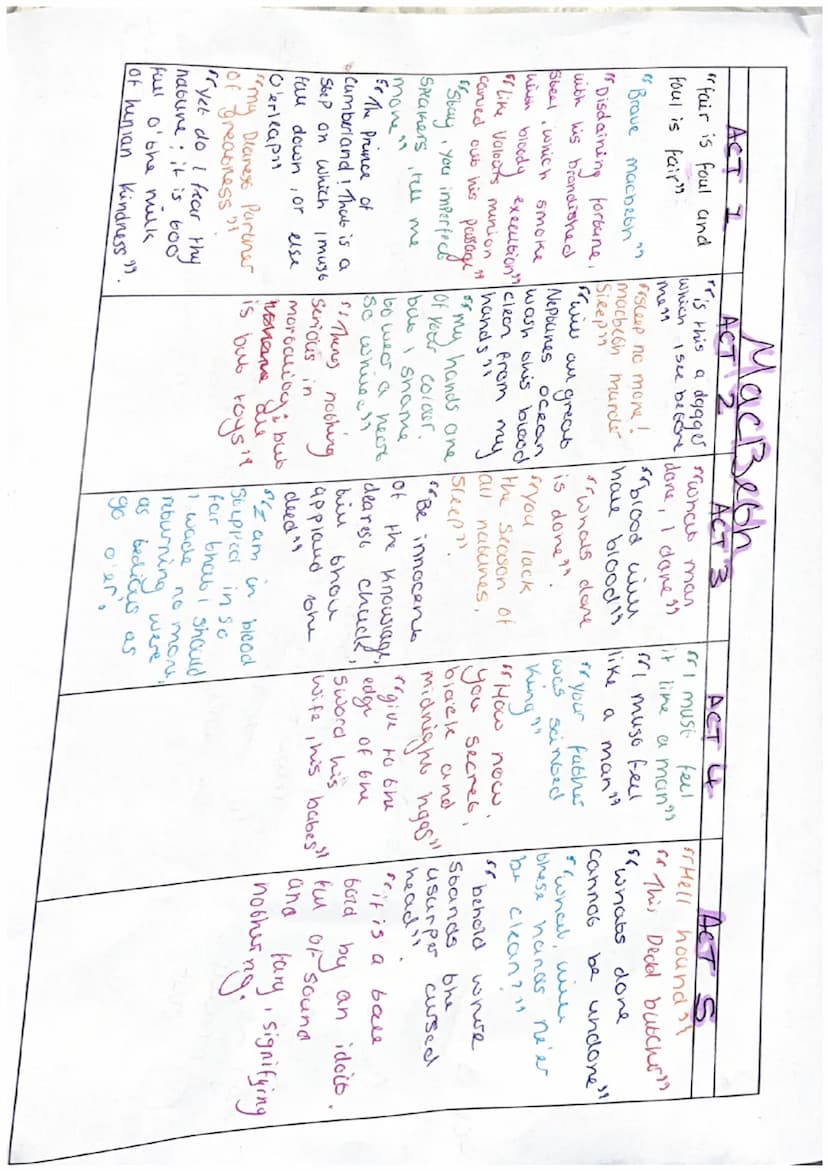 MacBeth
ACT 1
"fair is foul and
foul is fair"
"Brave macbeth"
"Disdaining fortune,
with his brandished
steel, which smoke
with bloody execution"
"like Valours minion
carved out his passage"
"Stay, you imperfect
speakers, tell me
more"
"The Prince of
cumberland! That is a
step on which I must
fall down, or else
O'erleap"
"my Dearest Partner
of Greatness"
"Yet do I fear thy
nature; it is too
full o'the milk
of human kindness".
ACT 2
"is this a dagger
which I see before
me"
"sleep no more!
macbeth murder
sleep"
"will all great
Neptunes ocean
wash this blood
clean from my
hands"
"my hands are
of your colour.
but I shame
to wear a heart
so white"
"Theres nothing
serious in
mortality: but
all
is but toys"
ACT 3
"what man
dare, I dare"
"blood will
have blood"
"whats done
is done".
"you lack
the season of
all natures,
sleep".
"Be innocent
of the knowlage,
dearest chuck,
till thou
applaud the
deed"
"I am in blood
Stepped in so
far that I should
I wade no more,
returning were
as tedious as
go o'er".
ACT 4
"I must feel
it like a man"
"I must feel
like a man"
"your father
was scinted
king"
"How now,
you secret,
black and
midnight hags"
"give to the
edge of the
sword his
wife, his babes"
ACT 5
"Hell hound"
"This Dead butcher"
"whats done
cannot be undone"
"what, will
these hands ne'er
be clean?"
"behold where
stands the
usurper cursed
head".
"it is a tale
told by an idoit.
full of sound
and fury, signifying
nothing.